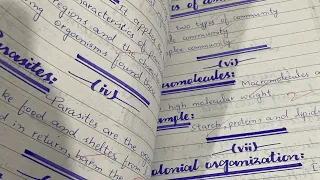 characteristics of
applies
regions and the
ing organisms found
(iv)
Parasites:
Parasites are the
ke food and shelter from
d in return, harm the
es of
two types of community
community
plex community
(vi)
omolecules:
Macromolecules
high molecular weight
ample:
Starch, proteins and lipids
(vii)
olonial organization: